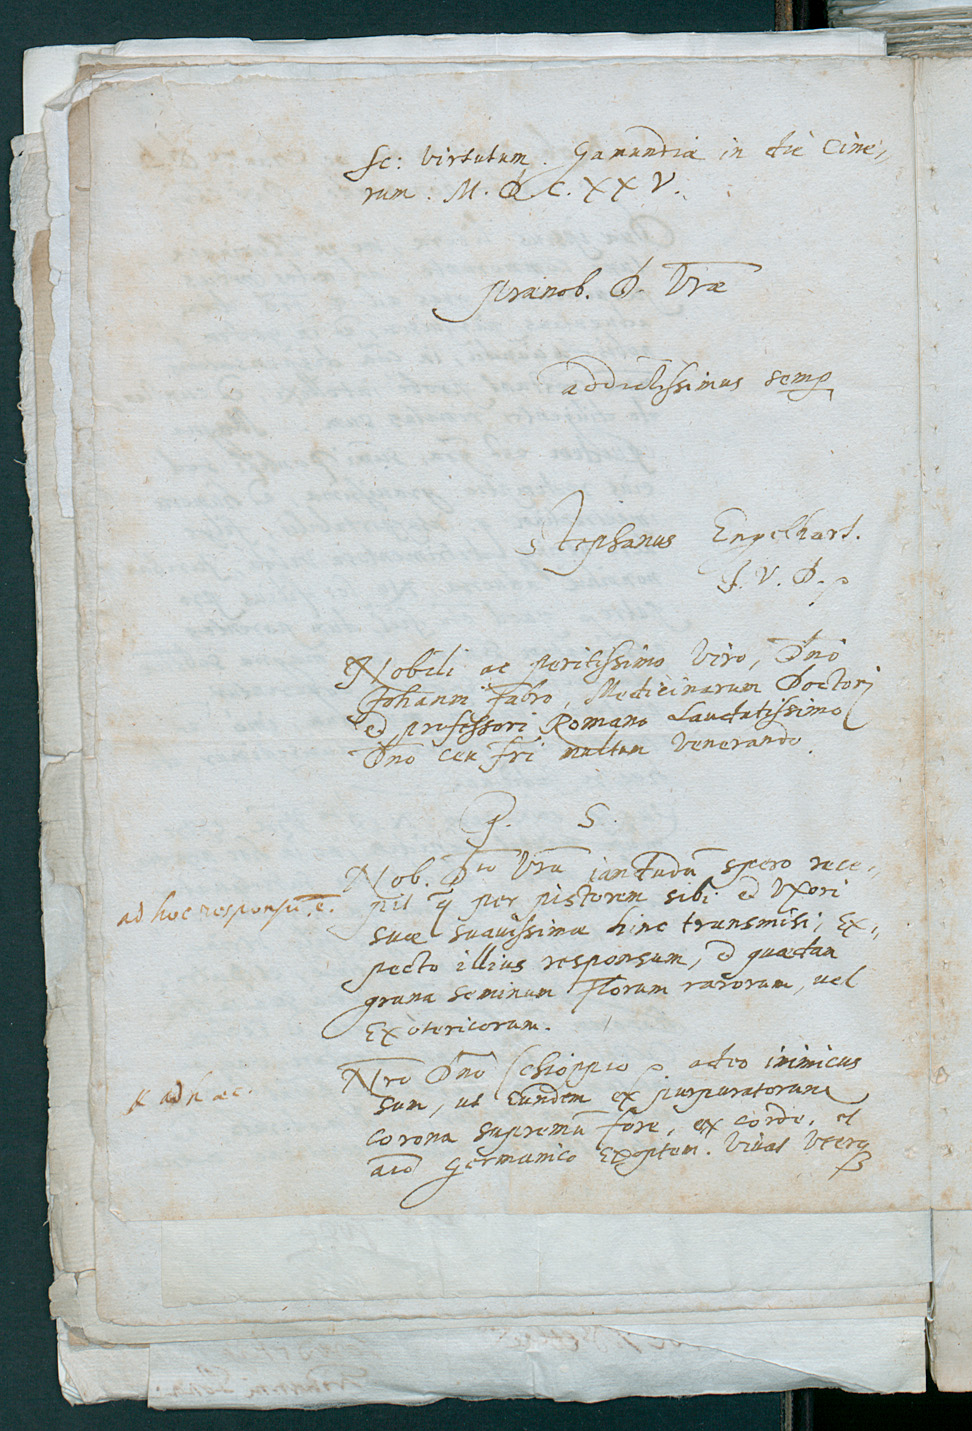 sc: virtutum. Gamundiæ in die Cine,,
rum. M. D. C. XXV.
prænob. D. Vræ
addictissimus semp
Stephanus Engelhart.
J. V. D.
Nobili ac peritissimo Viro, Dno
Johanni Fabro, Medicinarum Doctori
et professori Romano Laudatissimo
Dno ceu Fri multum Venerando.
P. S.
Nob. Dtio Vra iamdudu spero rece,,
ad hoc responsu. e.
pit q per pistorem sibi et Vxori
suæ suauissimæ hinc transmisi, Ex,,
pecto illius responsum, et quædam
grana seminum Florum rarorum, uel
Exotericorum.
Nro Dno Schioppio adeo inimicus
ad hæc.
sum, ut Eundem ex purpuratorum
corona supremu fore, ex corde, et
aio Germanico Exoptem. Viuat Vterq